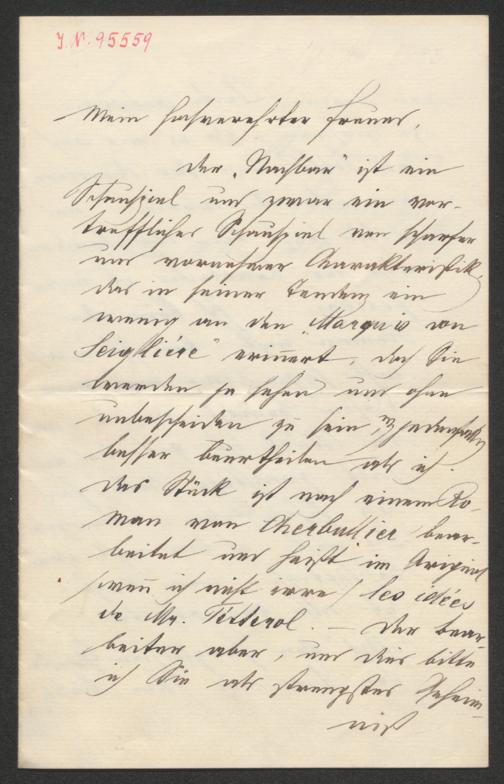 J. N. 95559
Mein hochverehrter Freund,
der „Nachbar" ist ein
Schauspiel und zwar ein vor-
treffliches Schauspiel von scharfer
und vornehmer Charakteristik,
das in seiner Tendenz ein
wenig an den „Marquis von
Seiglliére" erinnert, doch Sie
werden ja sehen und ohne
unbescheiden zu sein, es jedenfalls
besser beurtheilen als ich.
Das Stück ist nach einem Ro-
man von Cherbullier bear-
beitet und heißt im Original
(wenn ich nicht irre) les idées
de Mr. Tétterol. – Der Bear-
beiter aber, und dies bitte
ich Sie als strengstes Geheim-
niß